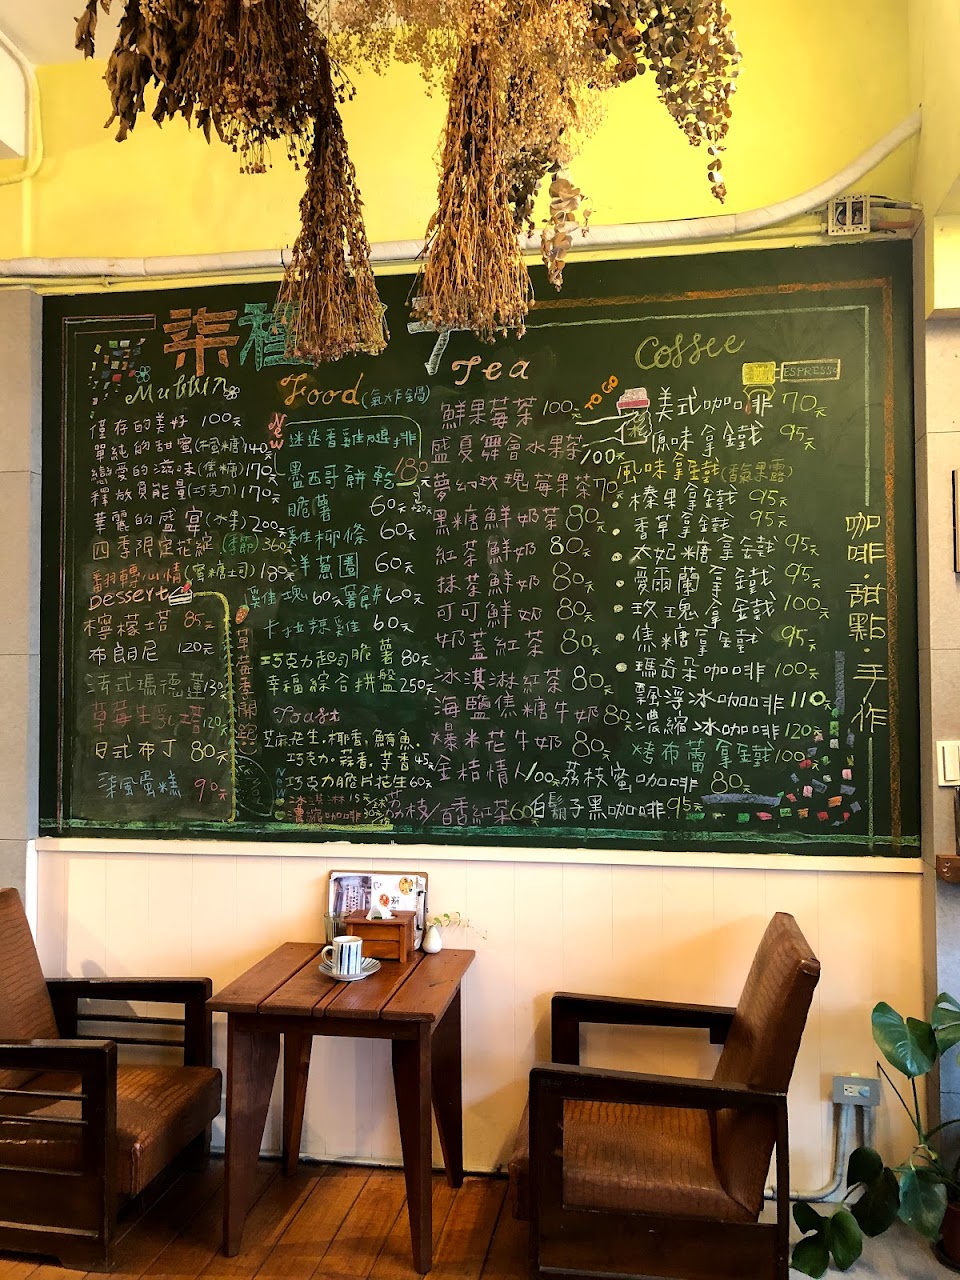 柒程
Muffin
僅存的美好 100元
單純的甜蜜(楓蜜糖) 140元
戀愛的滋味(焦糖) 170元
釋放負能量(巧克力) 170元
華麗的盛宴(水果) 200元
四季限定花綻(季節) 360元
翻轉心情(蜜糖土司) 180元
Dessert
檸檬塔 85元
布朗尼 120元
法式瑪德蓮 130元
草莓生乳塔 120元
日式布丁 80元
戚風蛋糕 90元
草莓季開跑
Food(氣炸鍋)
New
迷迭香雞腿排
180元
墨西哥餅乾
脆薯 60元
雞柳條 60元
洋蔥圈 60元
雞塊 60元 薯餅 60元
卡拉辣雞 60元
巧克力起司脆薯 80元
幸福綜合拼盤 250元
Toast
芝麻.花生.椰香.鮪魚.
巧克力.蒜香.芋香 45元
巧克力脆片花生 60元
New
冰淇淋 15元
濃縮咖啡 30元
Tea
鮮果莓茶 100元
盛夏舞會水果茶 100元
夢幻玫瑰莓果茶 70元
黑糖鮮奶茶 80元
紅茶鮮奶 80元
抹茶鮮奶 80元
可可鮮奶 80元
奶蓋紅茶 80元
冰淇淋紅茶 80元
海鹽焦糖牛奶 80元
爆米花牛奶 80元
金桔情人 100元
荔枝/百香紅茶 60元
Coffee
TO GO
ESPRESSO
美式咖啡 70元
原味拿鐵 95元
風味拿鐵(香氛果露)
榛果拿鐵 95元
香草拿鐵 95元
太妃糖拿鐵 95元
愛爾蘭拿鐵 95元
玫瑰拿鐵 100元
焦糖拿鐵 95元
瑪奇朵咖啡 100元
飄浮冰咖啡 110元
濃縮冰咖啡 120元
烤布蕾拿鐵 100元
荔枝蜜咖啡 80元
白鬍子黑咖啡 95元
咖啡·甜點·手作